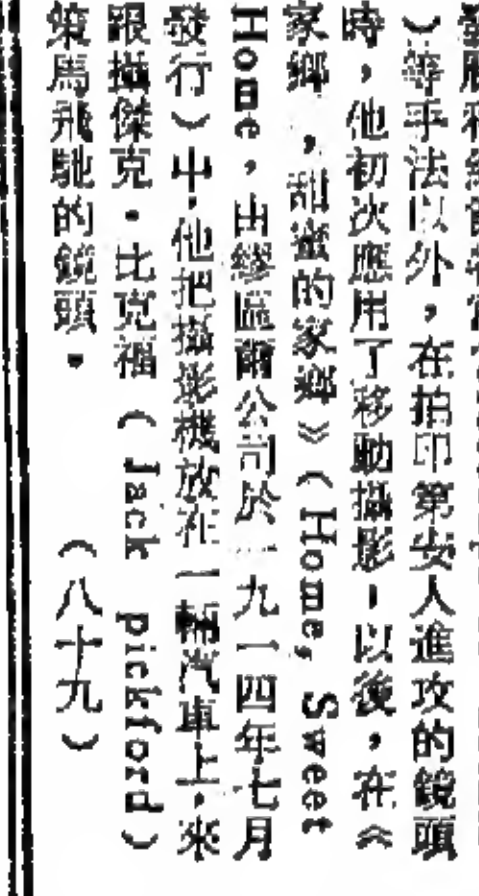 ）等手法以外，在拍印第安人進攻的鏡頭
時，他初次應用了移動攝影。以後，在《
家鄉，甜蜜的家鄉》（Home, Sweet
Home，由繆區爾公司於一九一四年七月
發行）中，他把攝影機放在一輛汽車上，來
跟攝傑克·比克福（Jack pickford）
策馬飛馳的鏡頭。　（八十九）